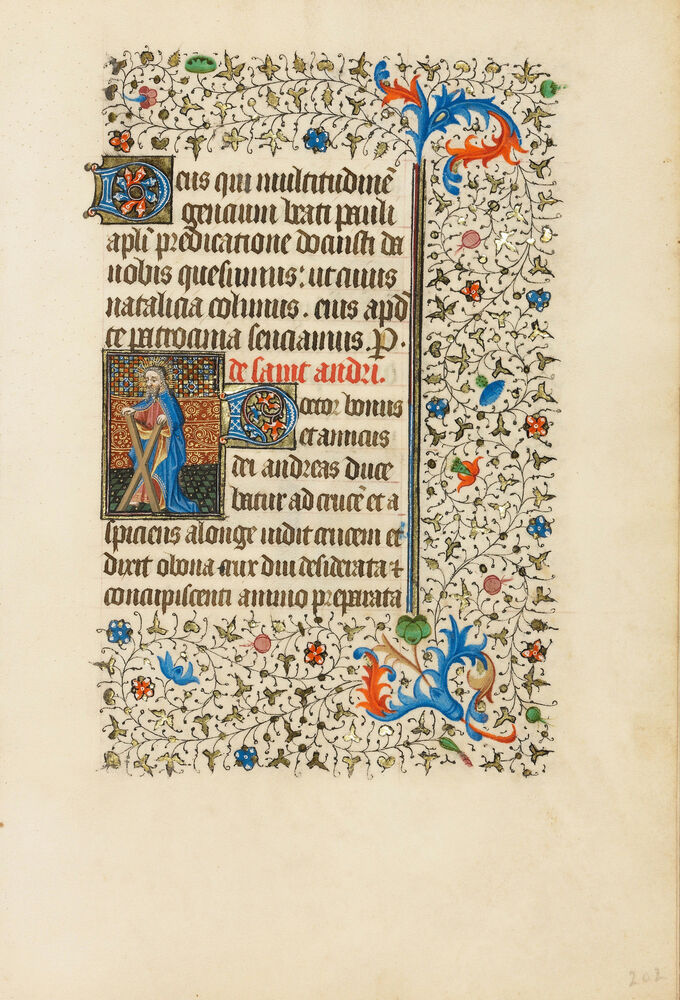 Deus qui multitudinē
gencium beati pauli
apl̄i predicatione docuisti da
nobis quesumus: ut cuius
natalicia colimus. eius apd̄
te patrocinia senciamus. P.
de saint andri.
Doctor bonus
et amicus
dei andreas duce
batur ad crucē et a
spiciens a longe uidit crucem et
dixit o bona crux diu desiderata ⁊
concupiscenti animo preparata
202